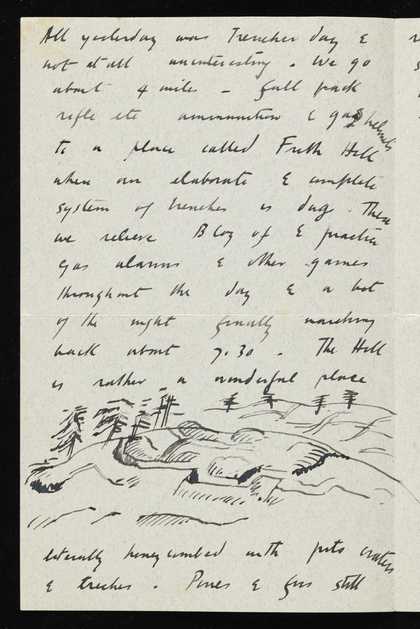 All yesterday was Trencher day &
not at all uninteresting. We go
about 4 miles – full pack
rifle etc ammunition & gas helmets
to a place called Frith Hill
when an elaborate & complete
system of trenches is dug. Then
we relieve B Coy of & practice
gas alarms & other games
throughout the day & a bot
of the night finally marching
back about 7.30. The Hill
is rather a wonderful place
literally honeycombed with pits craters
& trenches. Pines & Gors still